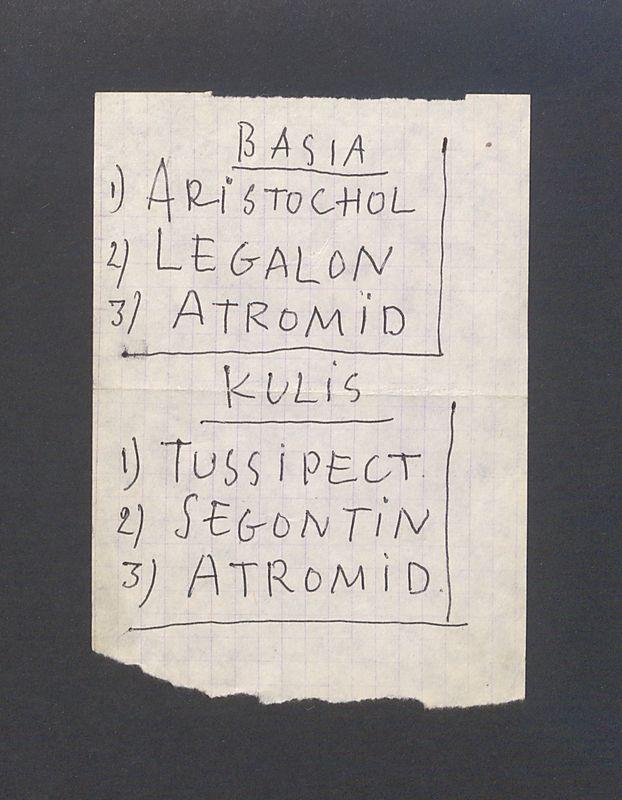 BASIA
1) ARiSTOCHOL
2) LEGALON
3) ATROMiD
KULiS
1) TUSSiPECT.
2) SEGONTiN
3) ATROMiD.